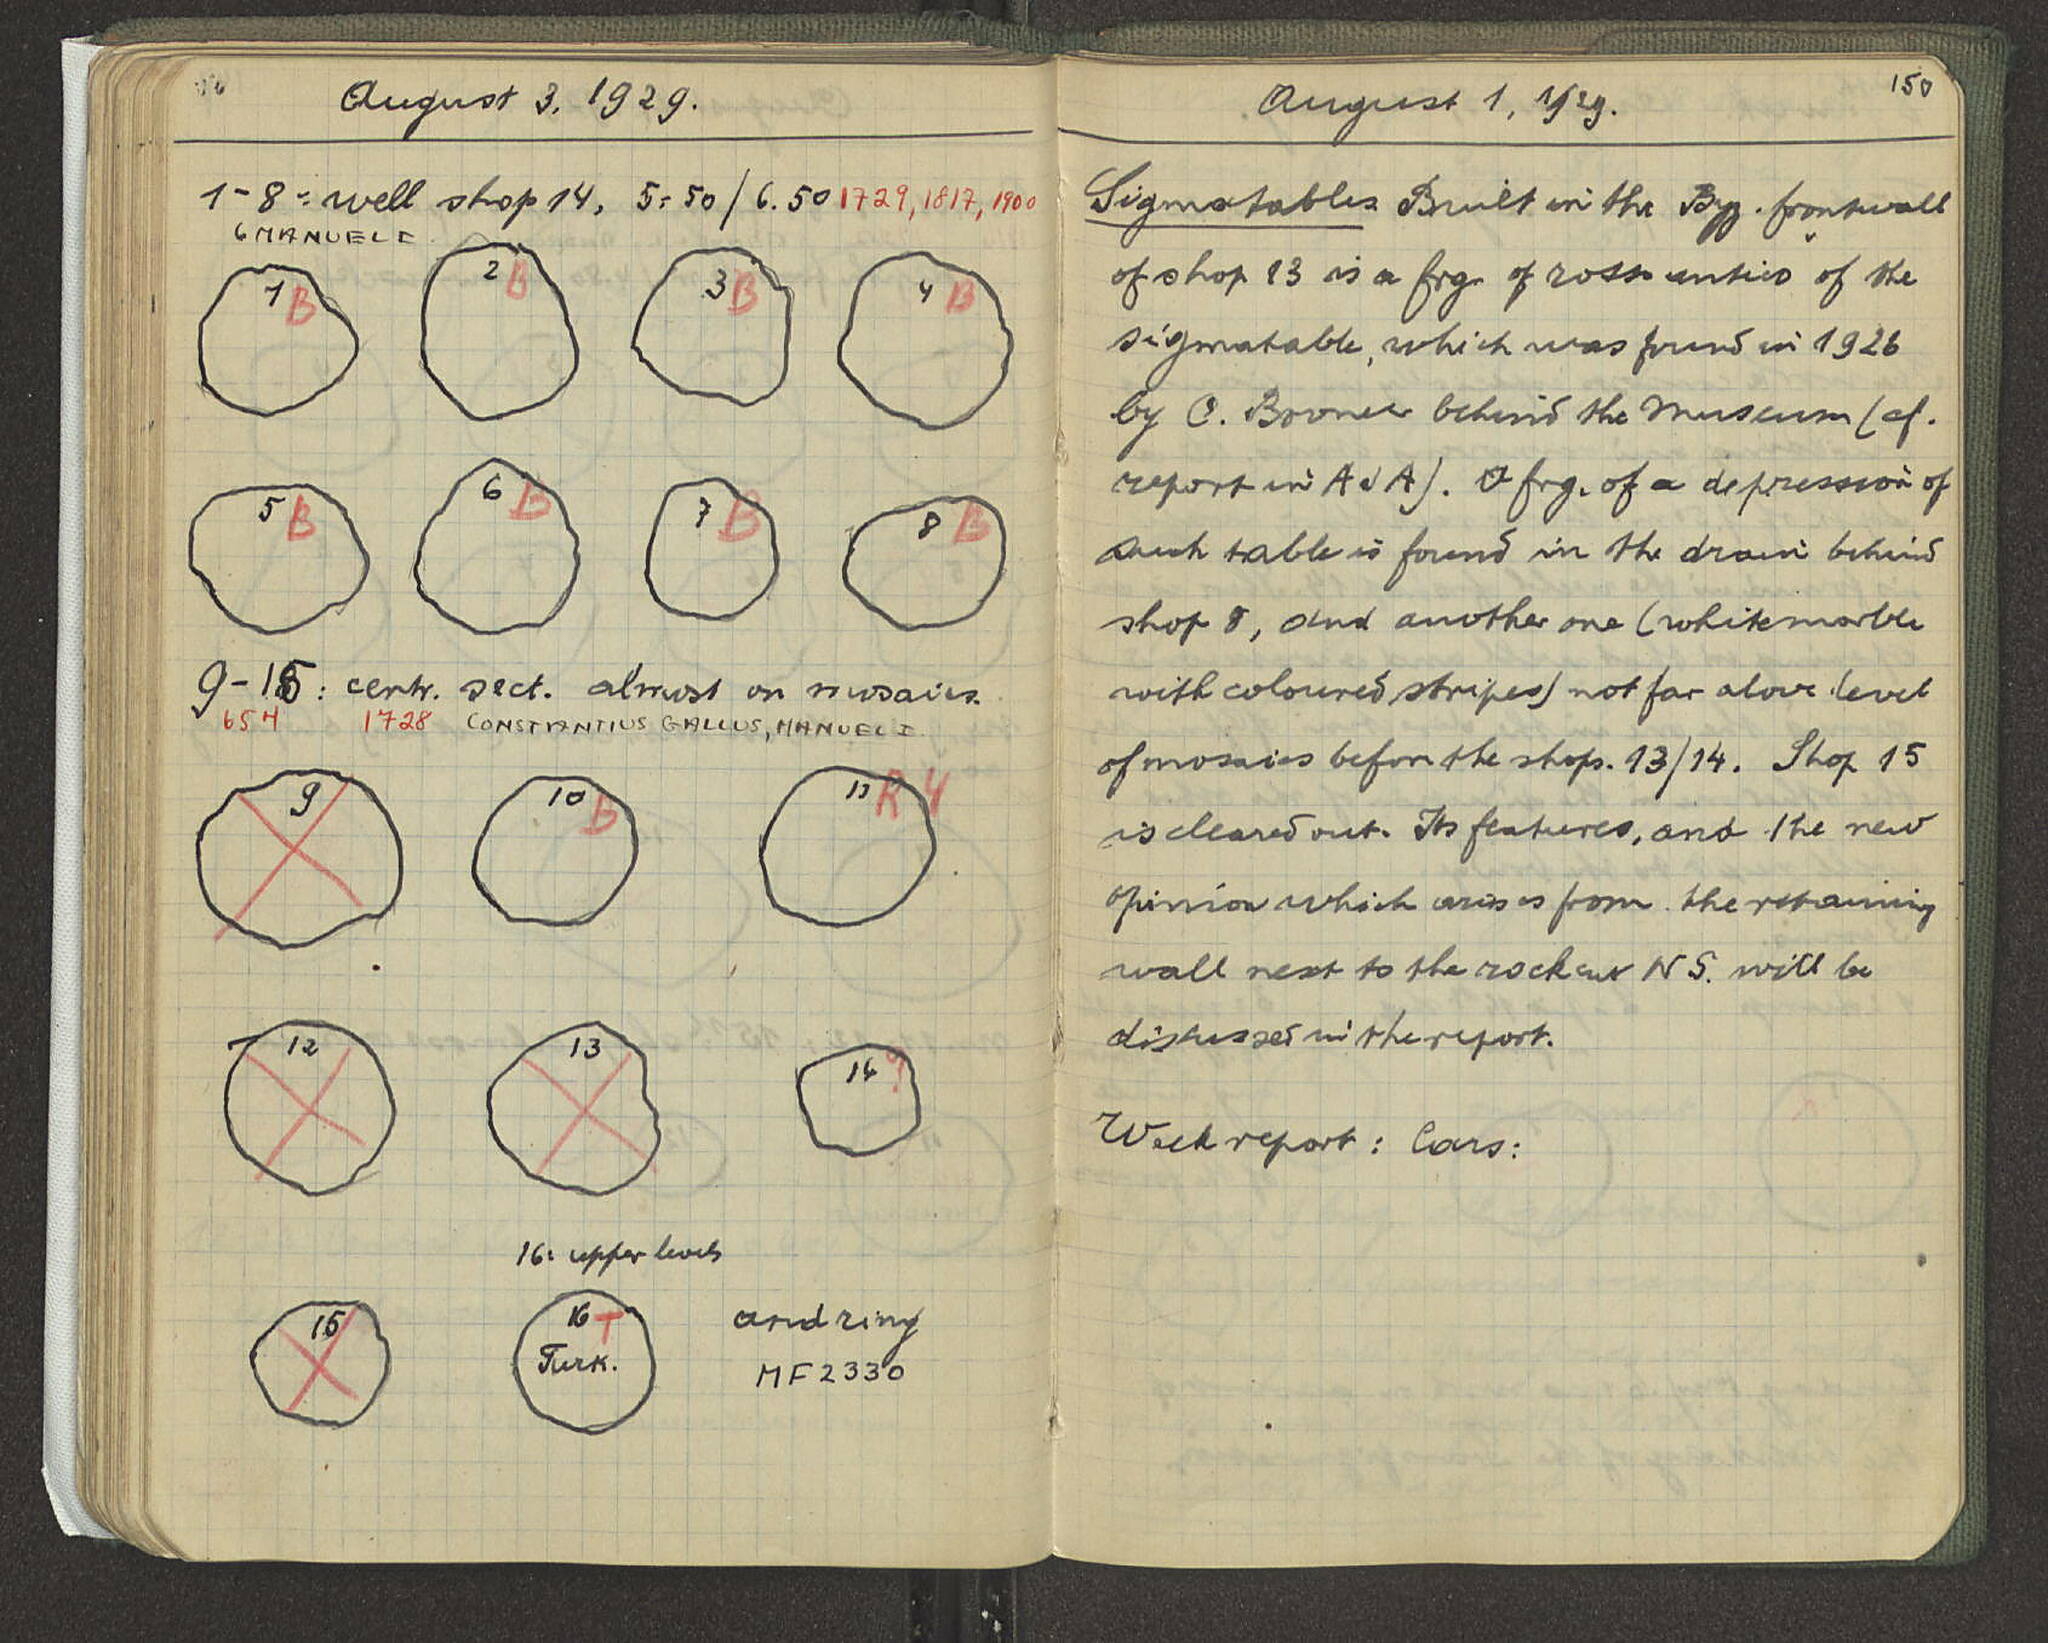 August 3, 1929.
1-8: well shop 14, 5.50/6.50 1729, 1817, 1900
6 MANUEL I
1 B
2 B
3 B
4 B
5 B
6 B
7 B
8 B
9-15: centr. sect. almost on mosaics.
654 1728 CONSTANTIUS GALLUS, MANUEL I
9
10 B
11 R 4
12
13
14 ?
16: upper levels
15
16 T
Turk.
and ring
MF 2330
150
August 1, 1929.
Sigmatables Built in the Byz. frontwall
of shop 13 is a frg. of rosso antico of the
sigmatable, which was found in 1926
by O. Broneer behind the Museum (cf.
report in AJA). A frg. of a depression of
such table is found in the drain behind
shop 8, and another one (white marble
with coloured stripes) not far above level
of mosaics before the shops 13/14. Shop 15
is cleared out. Its features, and the new
opinion which arises from the retaining
wall next to the rockcut N S. will be
discussed in the report.
Week report: Cars: